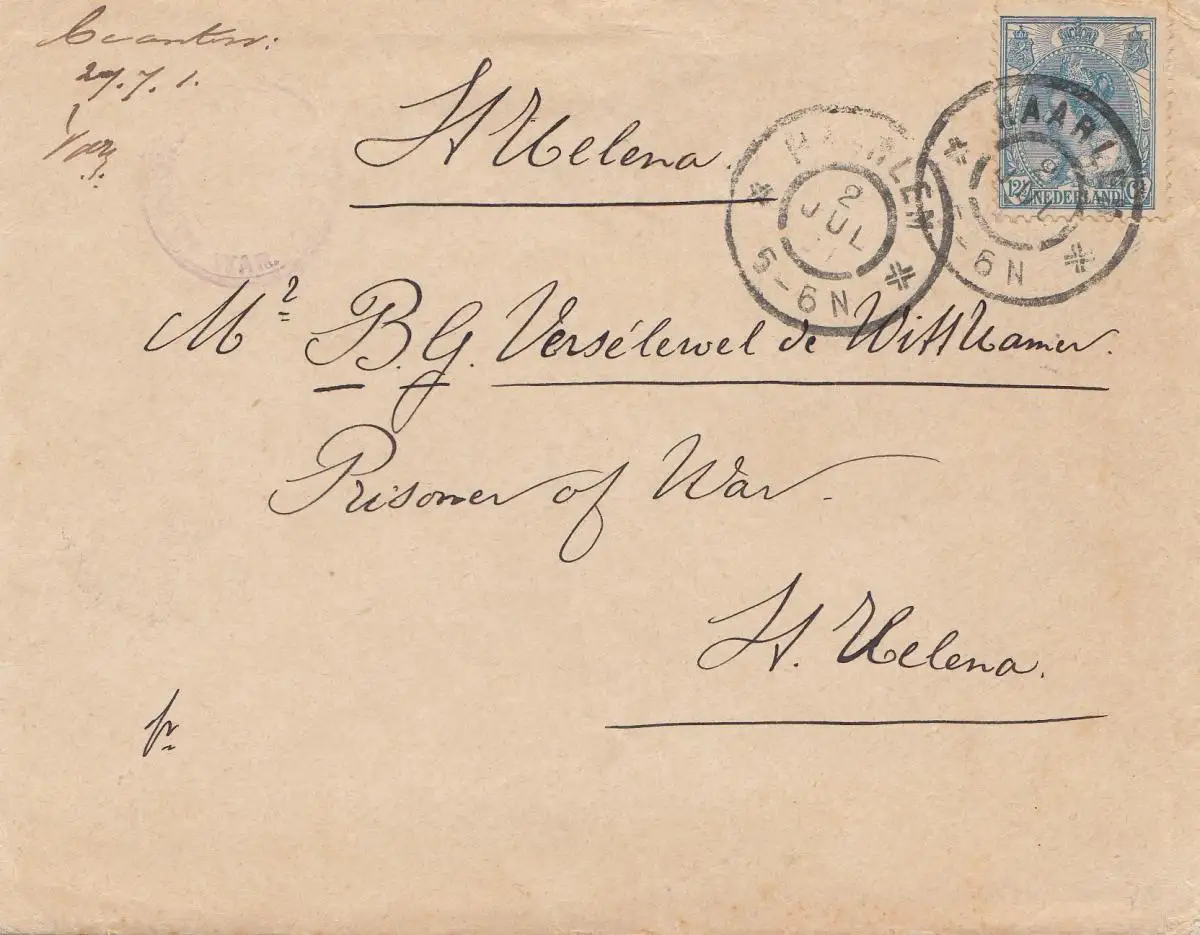 27.7.1.
St Helena.
HAARLEM
2
JUL
5-6N
HAARLEM
2
JUL
5-6N
12½ NEDERLAND Ct
WAR.
Mr B.G. Versélewel de Witt Hamer.
Prisoner of War.
St. Helena.